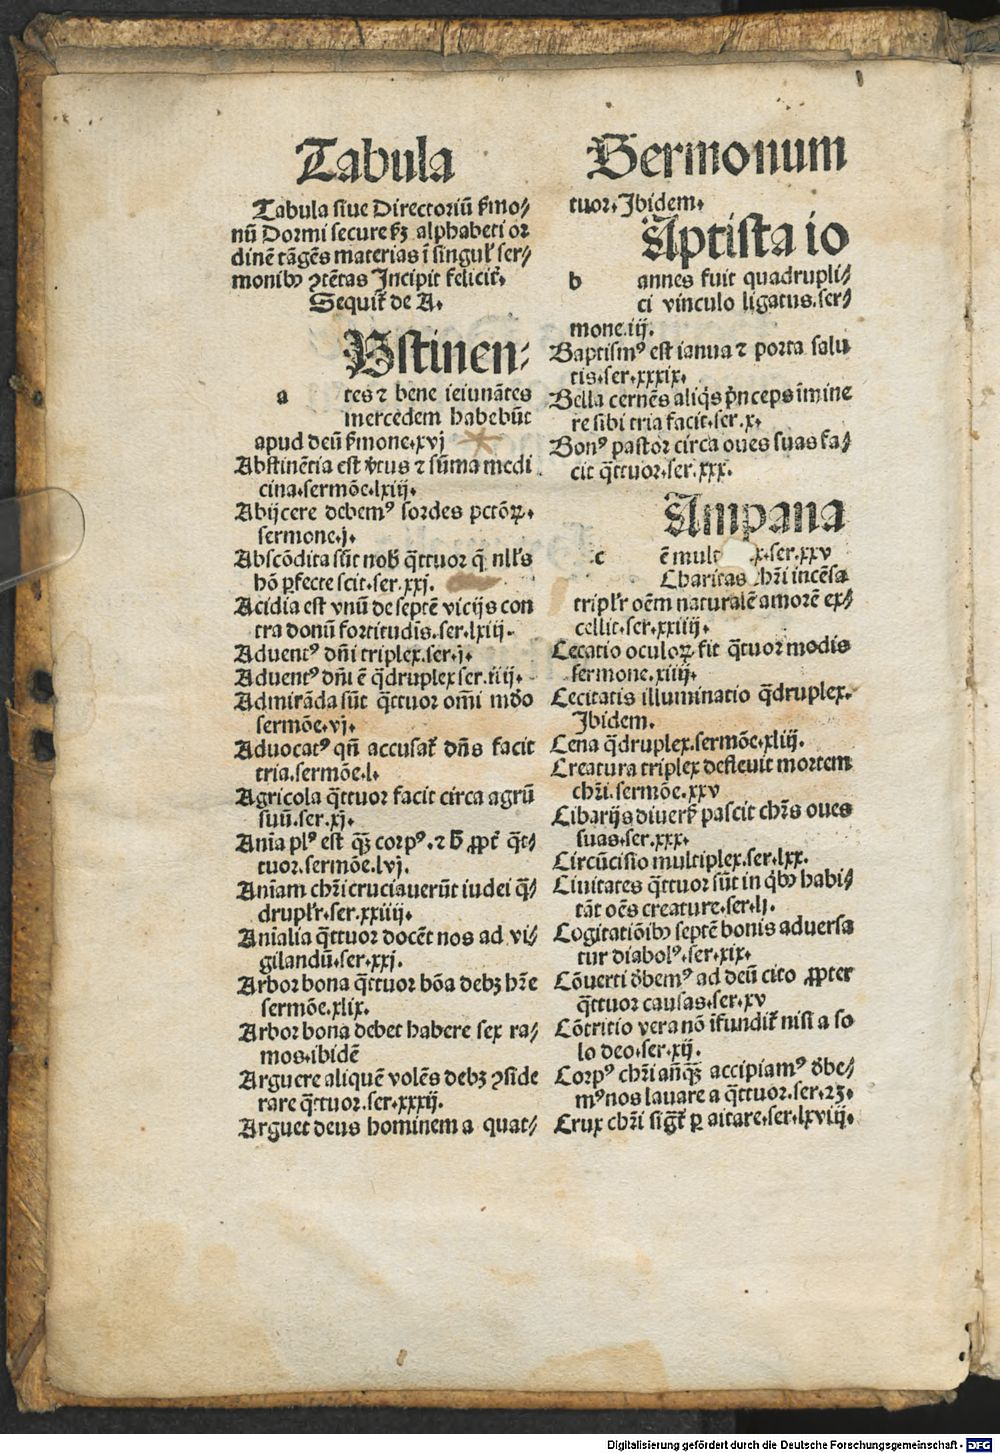 Tabula
Tabula siue Directoriū ẜmo⸗
nū Dormi secure ẜꝫ alphabeti or
dinē tāgēs materias ī singul' ser⸗
monibꝰ ꝯtētas Incipit felicit̄.
Sequit̄ de A.
Bstinen⸗
a tes ⁊ bene ieiunātes
mercedem habebūt
apud deū ẜmone.xvj
Abstinētia est v̄tus ⁊ sūma medi
cina.sermōe.lxiij.
Abijcere debemꝰ sordes pctōꝝ.
sermone.j.
Abscōdita sūt nob̄ q̄ttuor q̄ nll's
hō ꝑfecte scit.ser.xxj.
Acidia est vnū de septē vicijs con
tra donū fortitudīs.ser.lxiij.
Aduentꝰ dn̄i triplex.ser.j.
Aduentꝰ dn̄i ē q̄druplex ser.iiij.
Admirāda sūt q̄ttuor om̄i mōdo
sermōe.vj.
Aduocatꝰ qn̄ accusat̄ dn̄s facit
tria.sermōe.l.
Agricola q̄ttuor facit circa agrū
suū.ser.xj.
Anīa plꝰ est q̄ꝫ corpꝰ.⁊ h̄ ꝓpt̄ q̄t⸗
tuor.sermōe.lvj.
Anīam chr̄i cruciauerūt iudei q̄⸗
drupl'r.ser.xxiiij.
Anīalia q̄ttuor docēt nos ad vi⸗
gilandū.ser.xxj.
Arbor bona q̄ttuor bōa debꝫ hr̄e
sermōe.xlix.
Arbor bona debet habere sex ra⸗
mos.ibidē
Arguere aliquē volēs debꝫ ꝯside
rare q̄ttuor.ser.xxxij.
Arguet deus hominem a quat⸗
Sermonum
tuor.Ibidem.
Aptista io
b annes fuit quadrupli⸗
ci vinculo ligatus.ser⸗
mone.iij.
Baptismꝰ est ianua ⁊ porta salu
tis.ser.xxxix.
Bella cernēs aliq̄s pn̄ceps īmine
re sibi tria facit.ser.x.
Bonꝰ pastor circa oues suas fa⸗
cit q̄ttuor.ser.xxx.
Ampana
c ē mult x.ser.xxv
Charitas chr̄i incēsa
tripl'r oēm naturalē amorē ex⸗
cellit.ser.xxiiij.
Cecatio oculoꝝ fit q̄tuor modis
sermone.xiiij.
Cecitatis illuminatio q̄druplex.
Ibidem.
Cena q̄druplex.sermōe.xliij.
Creatura triplex defleuit mortem
chr̄i.sermōe.xxv
Cibarijs diuerẜ pascit chr̄s oues
suas.ser.xxx.
Circūcisio multiplex.ser.lxx.
Ciuitates q̄ttuor sūt in q̄bꝰ habi⸗
tāt oēs creature.ser.lj.
Cogitatiōibꝰ septē bonis aduersa
tur diabolꝰ.ser.xix.
Cōuerti debemꝰ ad deū cito ꝓpter
q̄ttuor causas.ser.xv
Cōtritio vera nō īfundit̄ nisi a so
lo deo.ser.xij.
Corpꝰ chr̄i an̄q̄ꝫ accipiamꝰ debe⸗
mꝰ nos lauare a q̄ttuor.ser.23.
Crux chr̄i sigt̄ ꝑ altare.ser.lxviij.
Digitalisierung gefördert durch die Deutsche Forschungsgemeinschaft - DFG